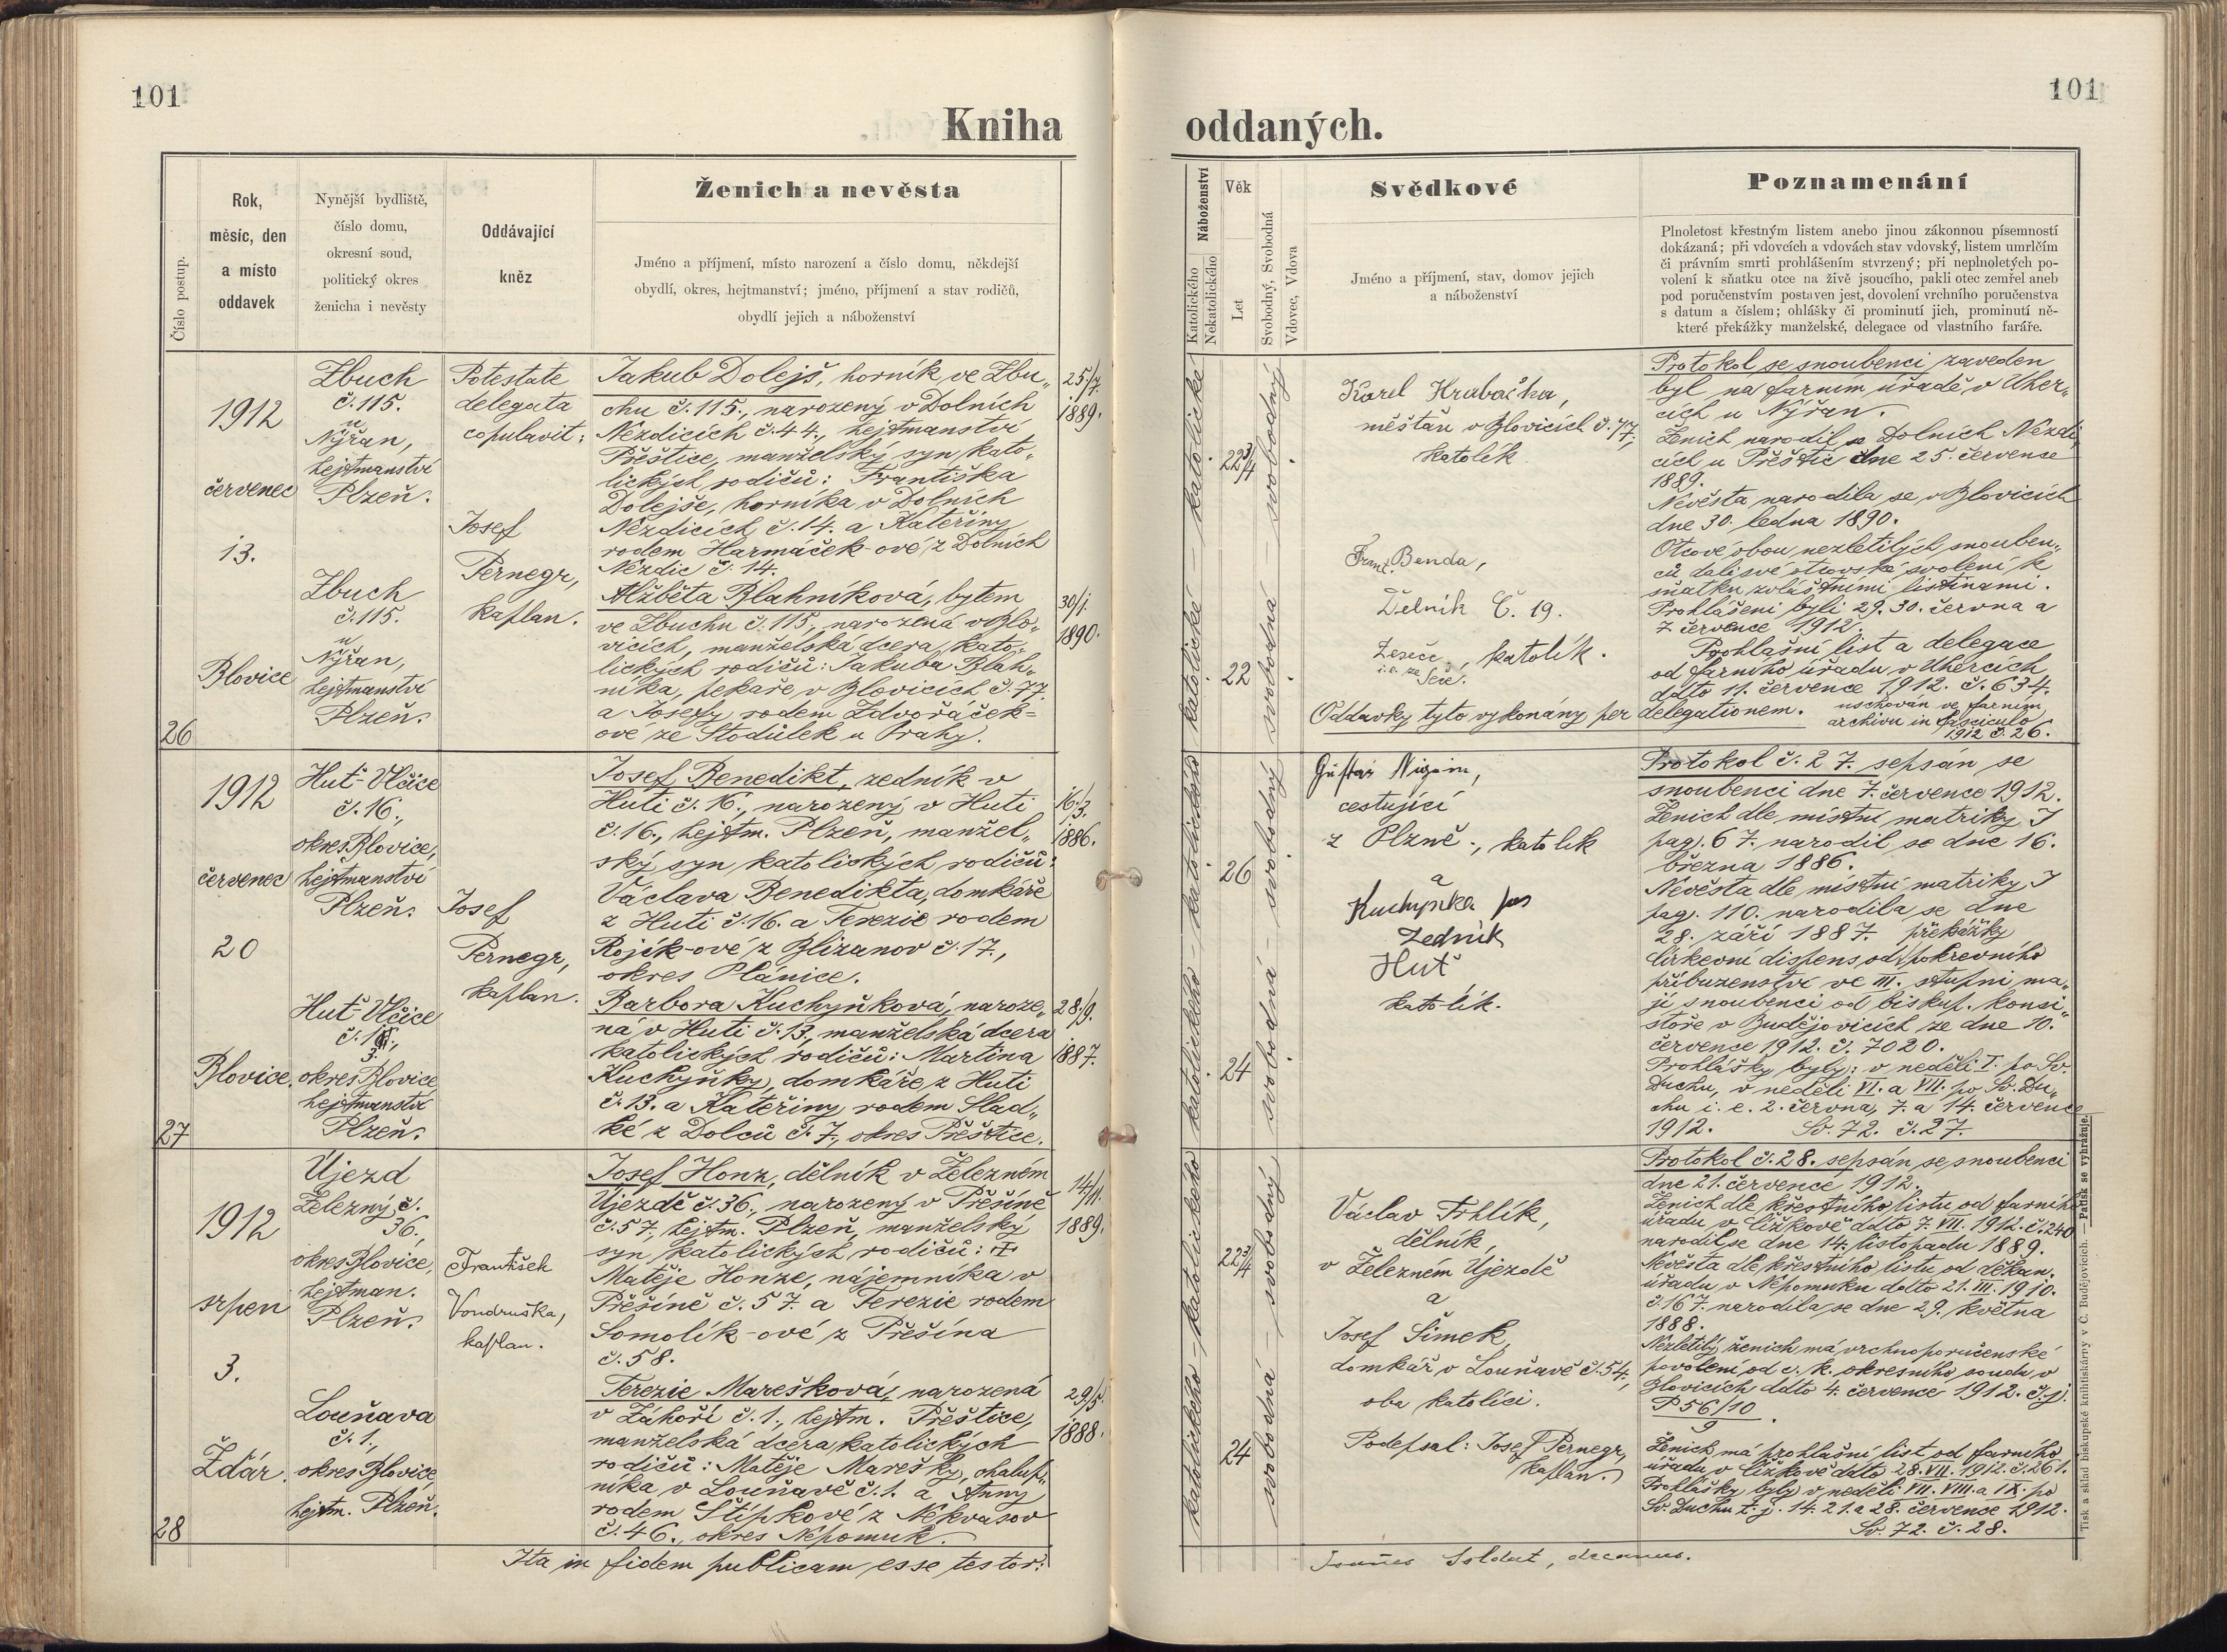 101
Kniha
Číslo postup.
Rok,
měsíc, den
a místo
oddavek
Nynější bydliště,
číslo domu,
okresní soud,
politický okres
ženicha i nevěsty
Oddávající
kněz
Ženich a nevěsta
Jméno a příjmení, místo narození a číslo domu, někdejší
obydlí, okres, hejtmanství; jméno, příjmení a stav rodičů,
obydlí jejich a náboženství
26
1912
červenec
13.
Blovice
Zbuch
č. 115.
u
Nýřan,
hejtmanství
Plzeň.
Zbuch
č. 115.
u
Nýřan,
hejtmanství
Plzeň.
Potestate
delegata
copulavit:
Josef
Pernegr,
kaplan.
Jakub Dolejš, horník ve Zbu„
chu č. 115., narozený v Dolních
Nezdicích č. 44., hejtmanství
Přeštice, manželský syn kato„
lických rodičů: Františka
Dolejše, horníka v Dolních
Nezdicích č. 14. a Kateřiny
rodem Harmáček-ové z Dolních
Nezdic č. 14.
25./7.
1889.
Alžběta Blahníková, bytem
ve Zbuchu č. 115., narozená v Blo„
vicích, manželská dcera kato„
lických rodičů: Jakuba Blah„
níka, pekaře v Blovicích č. 77.
a Josefy rodem Zdvořáček=
ové ze Stodůlek u Prahy.
30/1.
1890.
27
1912
červenec
20
Blovice.
Huť-Vlčice
č. 16.,
okres Blovice,
hejtmanství
Plzeň.
Huť-Vlčice
3.
okres Blovice,
hejtmanství
Plzeň.
Josef
Pernegr,
kaplan.
Josef Benedikt, zedník v
Huti č. 16., narozený v Huti
č. 16., hejtm. Plzeň, manžel„
ský syn katolických rodičů:
Václava Benedikta, domkáře
z Huti č. 16. a Terezie rodem
Rojík-ové z Blizanov č. 17.,
okres Plánice.
16./3.
1886.
Barbora Kuchyňková, naroze„
ná v Huti č. 13., manželská dcera
katolických rodičů: Martina
Kuchyňky, domkáře z Huti
č. 13. a Kateřiny rodem Slad„
ké z Dolců č. 7., okres Přeštice.
28./9.
1887.
28
1912
srpen
3.
Žďár.
Újezd
Železný č.
36.,
okres Blovice,
hejtman.
Plzeň.
Louňava
č. 1.,
okres Blovice,
hejtm. Plzeň.
František
Vondruška,
kaplan.
Josef Honz, dělník v Železném
Újezdě č. 36., narozený v Přešíně
č. 57., hejtm. Plzeň, manželský
syn katolických rodičů: †
Matěje Honze, nájemníka v
Přešíně č. 57. a Terezie rodem
Somolík-ové z Přešína
č. 58.
14/11.
1889.
Terezie Marešková, narozená
v Záhoří č. 1., hejtm. Přeštice,
manželská dcera katolických
rodičů: Matěje Marešky, chalup„
níka v Louňavě č. 1. a Anny
rodem Štípkové z Nekvasov
č. 46., okres Nepomuk.
29/5.
1888.
Ita in fidem publicam esse testor:
101
oddaných.
Náboženství
Katolického
Nekatolického
Věk
Let
Svobodný, Svobodná
Vdovec, Vdova
Svědkové
Jméno a příjmení, stav, domov jejich
a náboženství
Poznamenání
Plnoletost křestným listem anebo jinou zákonnou písemností
dokázaná; při vdovcích a vdovách stav vdovský, listem umrlčím
či právním smrti prohlášením stvrzený; při neplnoletých po-
volení k sňatku otce na živě jsoucího, pakli otec zemřel aneb
pod poručenstvím postaven jest, dovolení vrchního poručenstva
s datum a číslem; ohlášky či prominutí jich, prominutí ně-
které překážky manželské, delegace od vlastního faráře.
katolické
22 3/4
svobodný
katolické
22
svobodná
Karel Hrabačka,
měšťan v Blovicích č. 77.,
katolík
Frant. Benda,
Dělník Č. 19.
Zeseče, katolík.
i. e. ze Seče.
Oddavky tyto vykonány per delegationem.
Protokol se snoubenci zaveden
byl na farním úřadě v Uher„
cích u Nýřan.
Ženich narodil se Dolních Nezdi„
cích u Přeštic dne 25. července
1889.
Nevěsta narodila se v Blovicích
dne 30. ledna 1890.
Otcové obou nezletilých snouben„
ců dali své otcovské svolení k
sňatku zvláštními listinami.
Prohlášeni byli 29. 30. června a
7. července 1912.
Prohlašní list a delegace
od farního úřadu v Uhercích
ddto 11. července 1912. č. 634.
uschován ve farním
archivu in fasciculo
1912 č. 26.
katolického
26
svobodný
katolického
24
svobodná
cestující
z Plzně, katolík
a
Kuchyňka
Zedník
Huť
katolík.
Protokol č. 27. sepsán se
snoubenci dne 7. července 1912.
Ženich dle místní matriky I
pag. 67. narodil se dne 16.
března 1886.
Nevěsta dle místní matriky I
pag. 110. narodila se dne
28. září 1887. překážky
Církevní dispens od pokrevního
příbuzenství ve III. stupni ma„
jí snoubenci od biskup. konsi„
stoře v Budějovicích ze dne 10.
července 1912. č. 7020.
Prohlášky byly: v neděli I. po Sv.
Duchu, v neděli VI. a VII. po Sv. Du„
chu i. e. 2. června, 7. a 14. července
1912. Sv. 72. č. 27.
katolického
22 3/4
svobodný
katolického
24
svobodná
Václav Trhlík,
dělník
v Železném Újezdě
a
Josef Šimek,
domkář v Louňavě č. 54.,
oba katolíci.
Podepsal: Josef Pernegr,
kaplan.
Protokol č. 28. sepsán se snoubenci
dne 21. července 1912.
Ženich dle křestního listu od farního
úřadu v Čížkově ddto 7. VII. 1912. č. 240
narodil se dne 14. listopadu 1889.
Nevěsta dle křestního listu od děkan.
úřadu v Nepomuku ddto 21. III. 1910.
č. 167. narodila se dne 29. května
1888.
Nezletilý ženich má vrchnoporučenské
povolení od c. k. okresního soudu v
Blovicích ddto 4. července 1912. č. j.
P 56/10
9
Ženich má prohlašní list od farního
úřadu v Čížkově ddto 28. VII. 1912. č. 261.
Prohlášky byly v neděli VII. VIII. a IX. po
Sv. Duchu t. j. 14. 21. a 28. července 1912.
Sv. 72. č. 28.
Soldat, decanus.
Tisk a sklad biskupské knihtiskárny v Č. Budějovicích. — Patisk se vyhražuje.